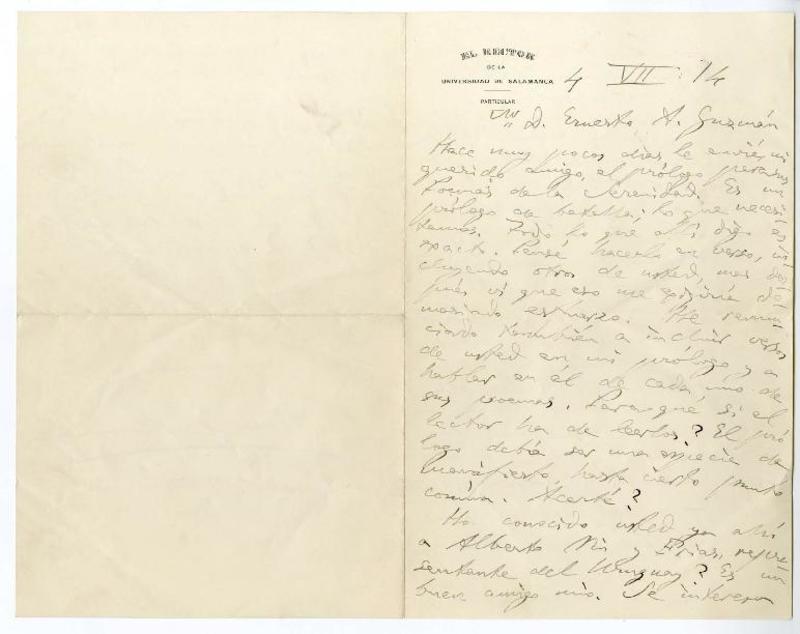 EL RECTOR
DE LA
UNIVERSIDAD DE SALAMANCA
4 VII 14
PARTICULAR
D. Ernesto A. Guzmán
Hace muy pocos días le envié, mi
querido amigo, el prólogo para sus
Poemas de la Serenidad. Es un
prólogo de batalla; lo que necesi-
tamos. Todo lo que allí digo es
exacto. Pensé hacerlo en verso, in-
cluyendo otros de usted, mas des-
pués vi que eso me exigiría de-
masiado esfuerzo. He renun-
ciado también a incluir versos
de usted en mi prólogo y a
hablar en él de cada uno de
sus poemas. Para qué si el
lector ha de leerlos? El pró-
logo debía ser una especie de
manifiesto, hasta cierto punto
común. Acerté?
Ha conocido usted ya ahí
a Alberto Nin y Frías, repre-
sentante del Uruguay? Es un
buen amigo mío. Se interesa